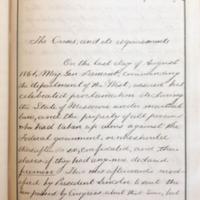 The Crises, and its requirements
On the last day of August
1861, Maj. Gen. Fremont, commanding
the department of the West, issued his
celebrated proclamation declaring
the State of Missouri under martial
law, and the property of all persons
who had taken up arms against the
Federal government, or who should
thereafter do so, confiscated, and their
slaves if they had any were declared
freemen. This was afterwards modi-
fied by President Lincoln to suit the
law passed by Congress about that time, but